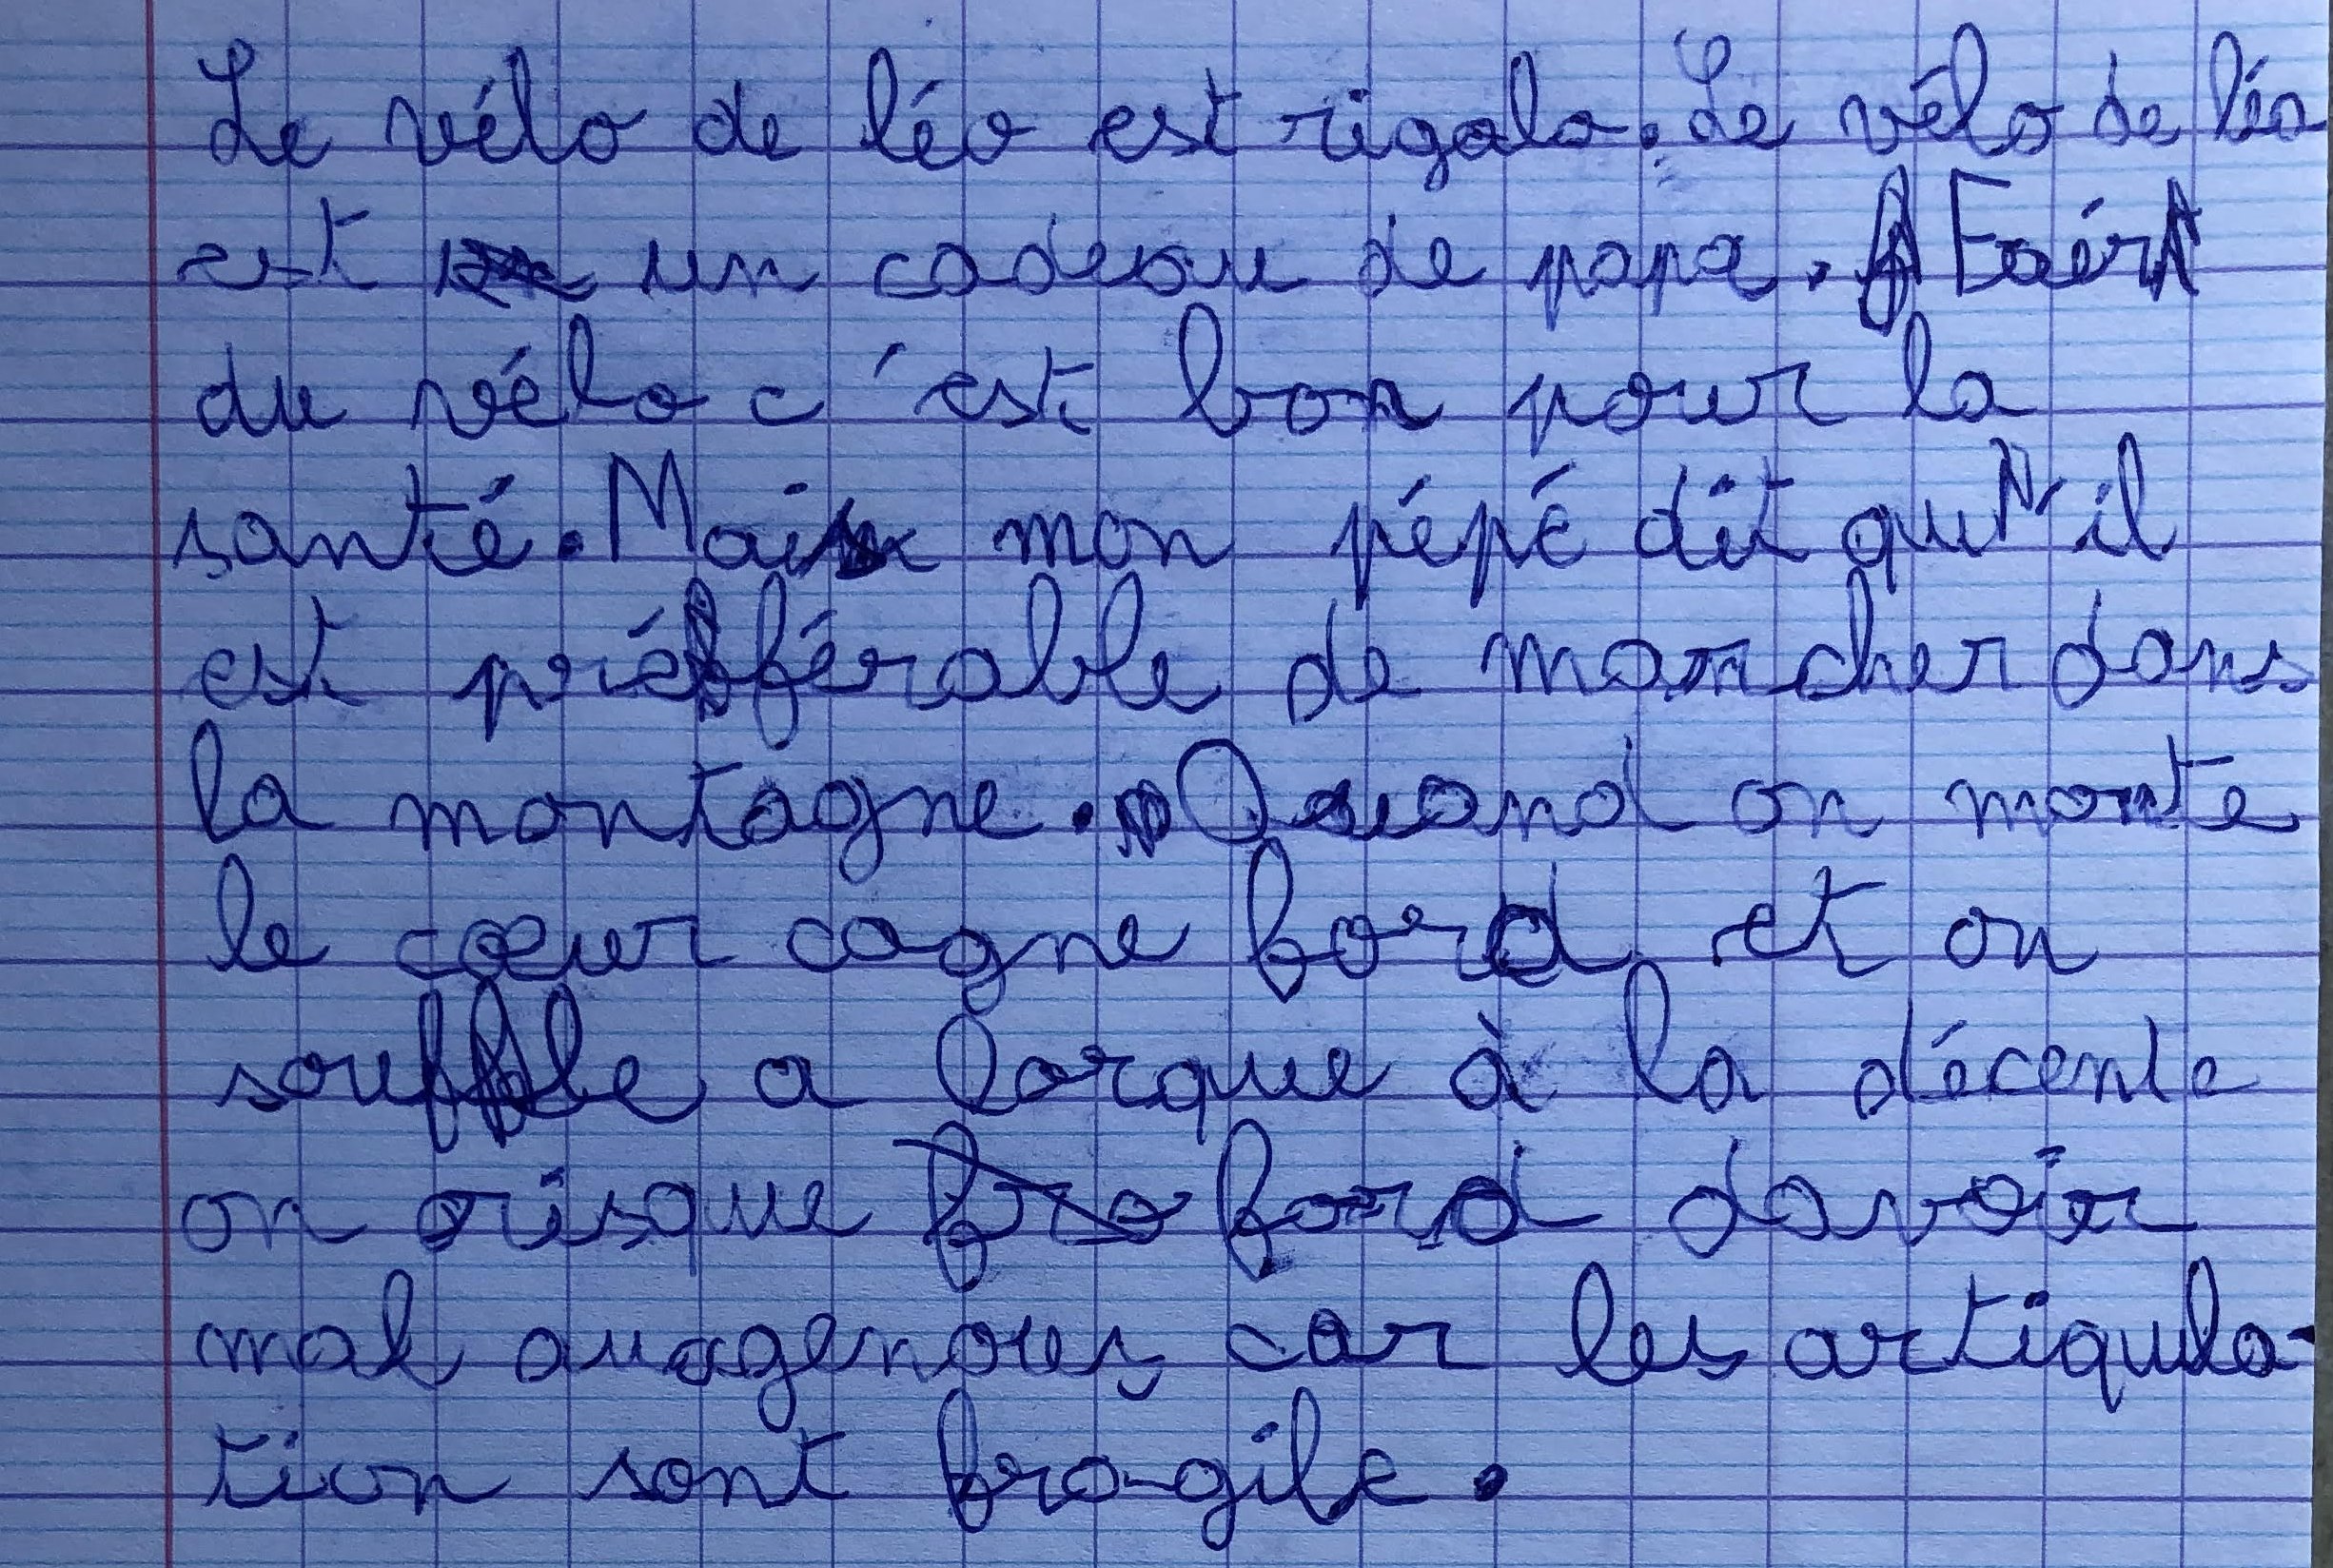 Le vélo de léo est rigolo. Le vélo de léo
est un cadeau de papa. Faér
du vélo c'est bon pour la
santé. Mais mon pépé dit qu'il
est préférable de marcher dans
la montagne. Quand on monte
le cœur cogne ford et on
souffle a lorque à la décente
on risque ford davoir
mal auagenoues car les artiqula-
tion sont fragile.